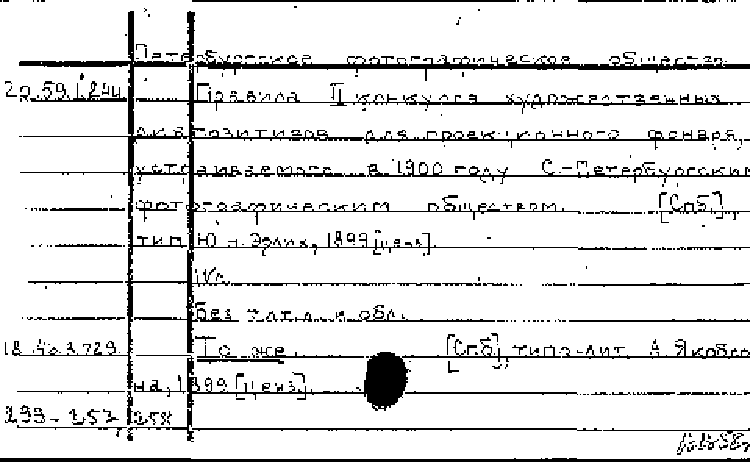 Петербургское фотографическое общество
20.59.1.244 Правила II конкурса художественных
диапозитивов для проекционного фонаря,
устраиваемого в 1900 году С.-Петербургским
фотографическим обществом. [Спб],
тип. Ю.Н.Эрлих, 1899 [ценз].
без тит.л. и обл.
18.403.729 То же. [Спб], типо-лит. А. Якобсо
на, 1899 [ценз].
293-257 258